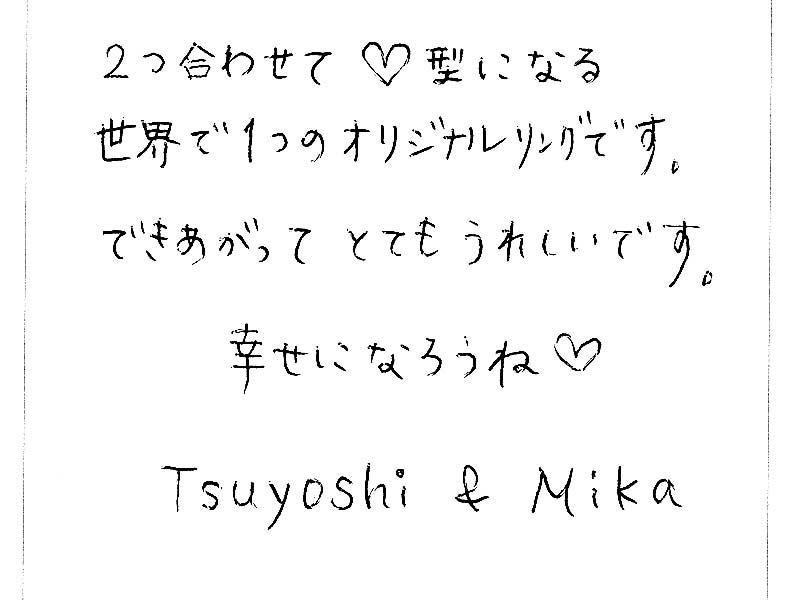 2つ合わせて ♡型になる
世界で1つのオリジナルリングです。
できあがって とてもうれしいです。
幸せになろうね♡
Tsuyoshi & Mika